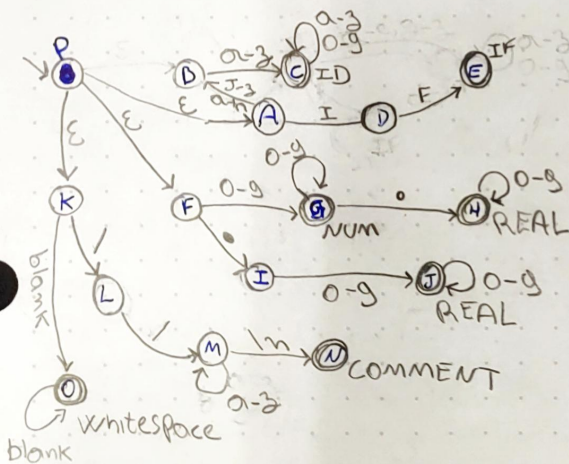 P
a-z
0-9
B
a-z
C
ID
E
IF
J-z
a-h
ε
A
I
D
F
ε
ε
0-9
K
F
0-9
G
NUM
.
H
0-9
REAL
.
I
0-9
J
0-9
REAL
/
blank
L
/
M
\n
N
COMMENT
a-z
O
whitespace
blank